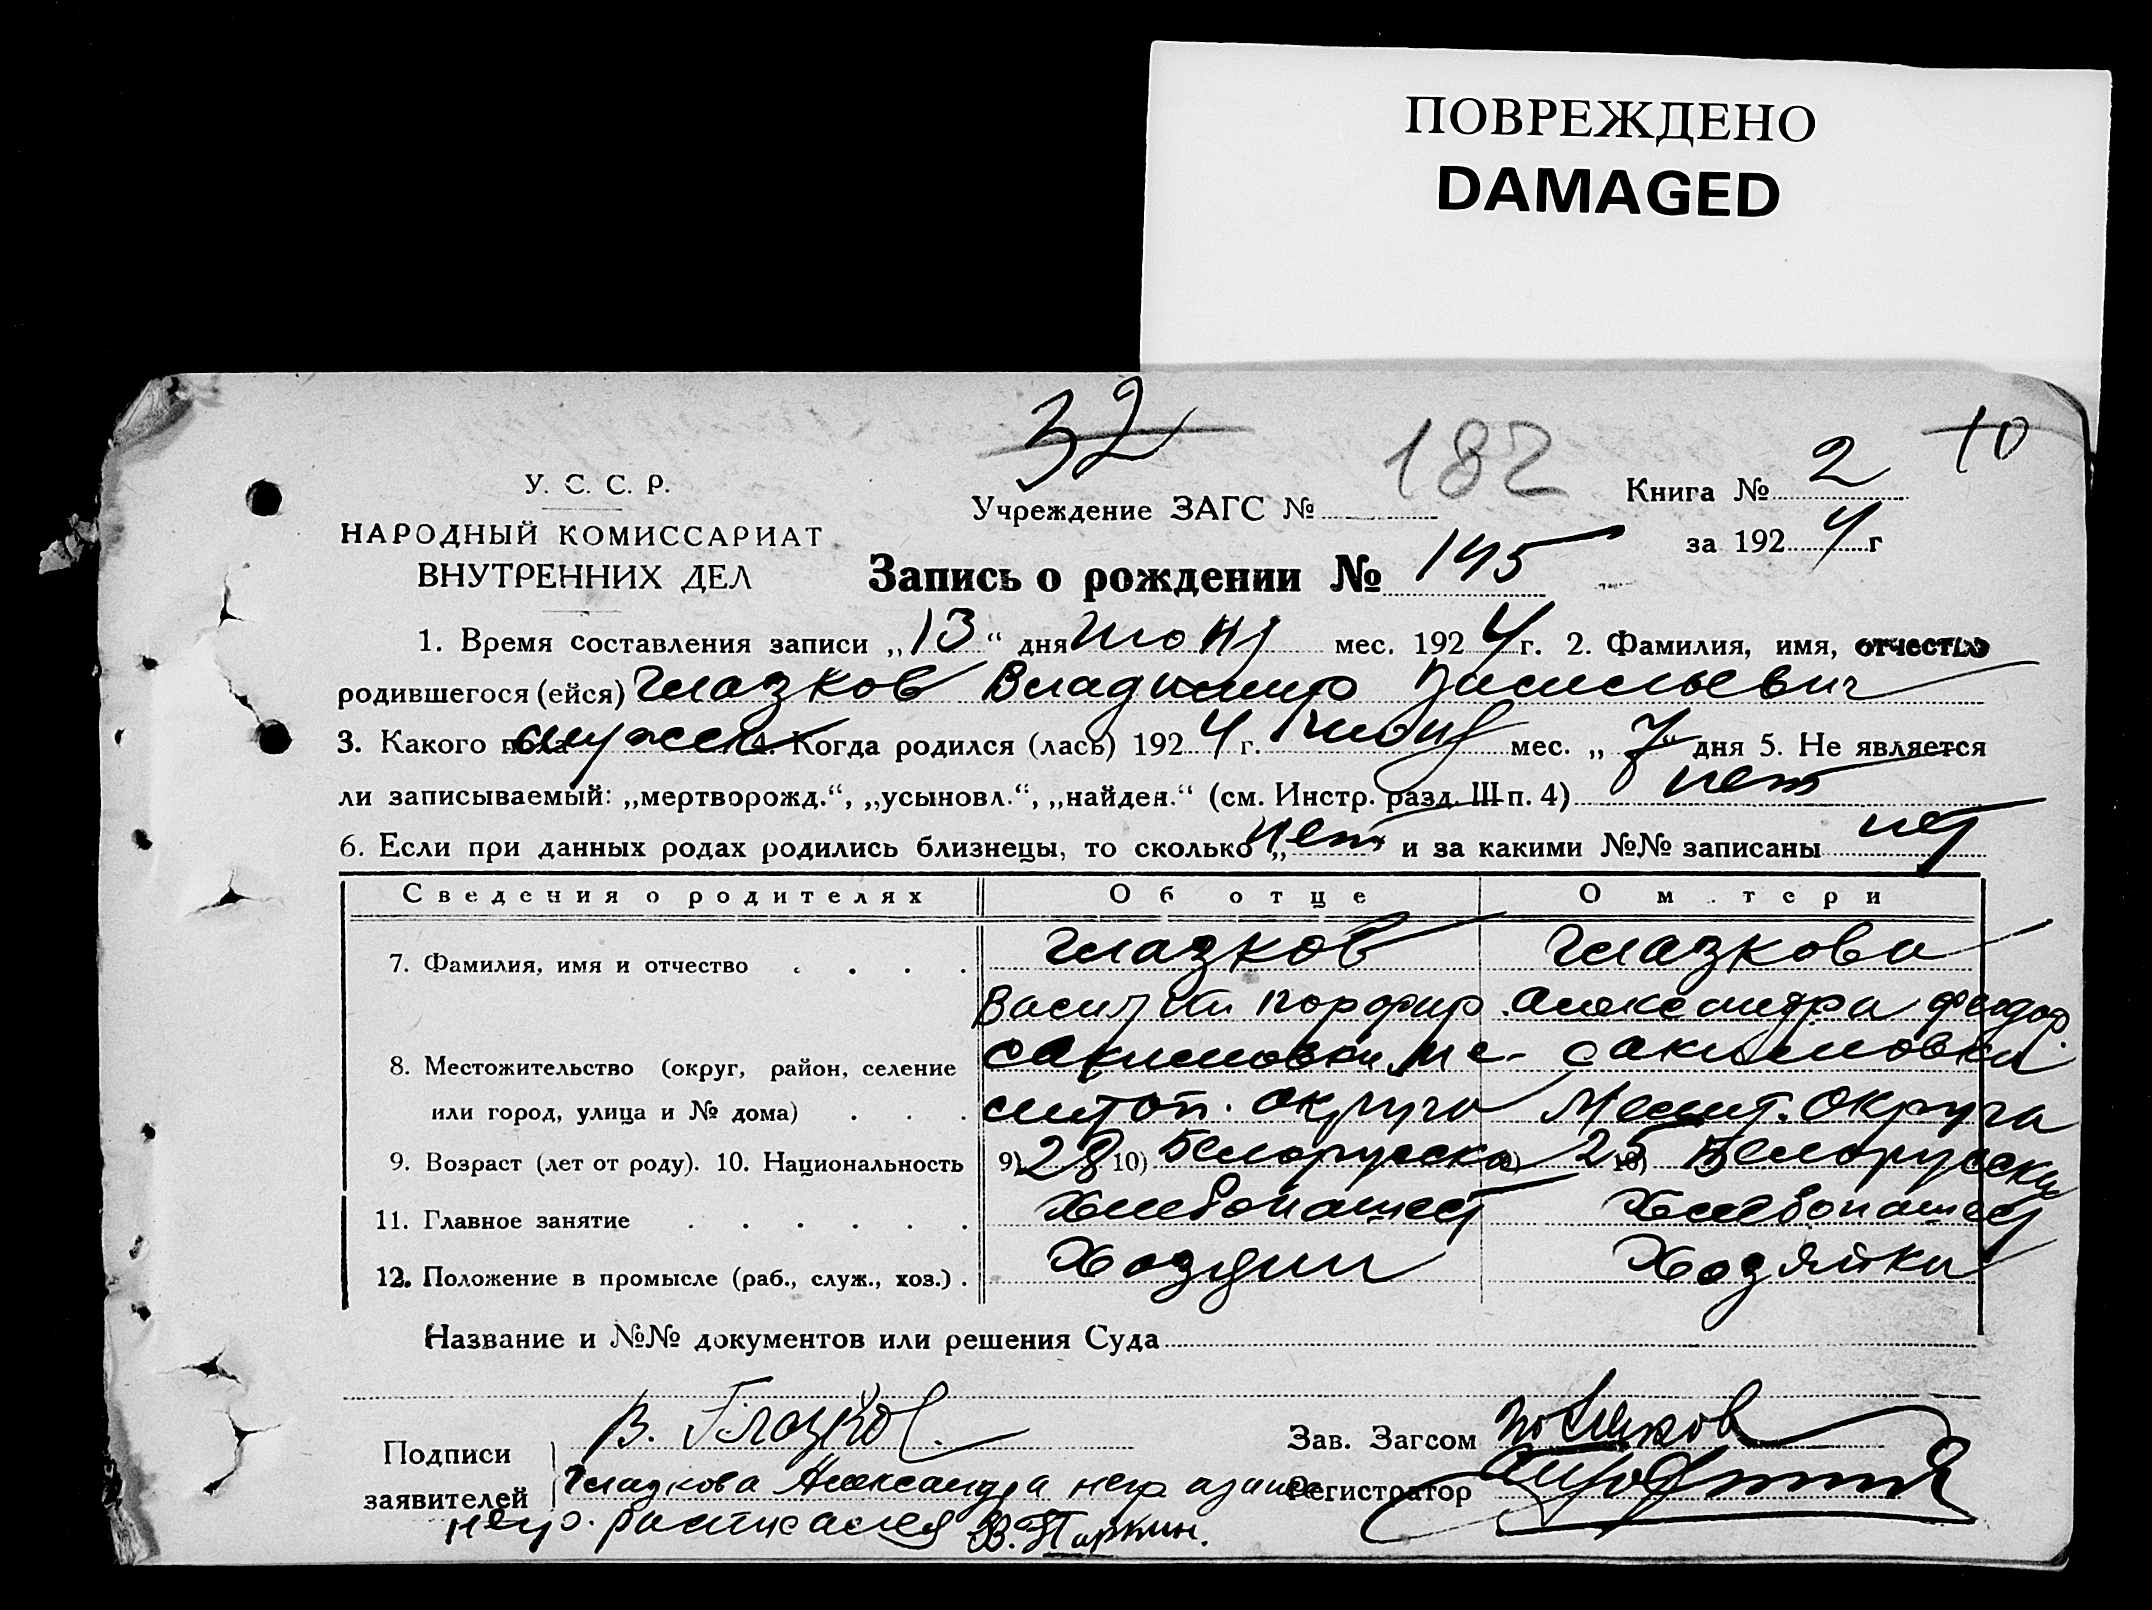 ПОВРЕЖДЕНО
DAMAGED
32
182
10
У. С. С. Р.
НАРОДНЫЙ КОМИССАРИАТ
ВНУТРЕННИХ ДЕЛ
Учреждение ЗАГС №
Книга № 2
за 1924 г
Запись о рождении № 145
1. Время составления записи „13“ дня июня мес. 1924 г. 2. Фамилия, имя, отчество
родившегося (ейся) Глазков Владимир Васильевич
3. Какого пола мужск 4. Когда родился (лась) 1924 г. июня мес. „7“ дня 5. Не является
ли записываемый: „мертворожд.“, „усыновл.“, „найден.“ (см. Инстр. разд. III п. 4) нет
6. Если при данных родах родились близнецы, то сколько „нет и за какими №№ записаны нет
Сведения о родителях Об отце О м тери
7. Фамилия, имя и отчество Глазков Глазкова
Василий Порфир. Александра Федор.
8. Местожительство (округ, район, селение Акимовка Ме- Акимовка
или город, улица и № дома) литоп. округа Мелит. округа
9. Возраст (лет от роду). 10. Национальность 9) 28 10) Белорусска 9) 25 10) Белорусска
11. Главное занятие Хлебопашест Хлебопашест
12. Положение в промысле (раб., служ., хоз.) Хозяин Хозяйка
Название и №№ документов или решения Суда
Подписи заявителей
В. Глазков.
Глазкова Александра неграм
расписался В. Паркин.
Зав. Загсом
Регистратор